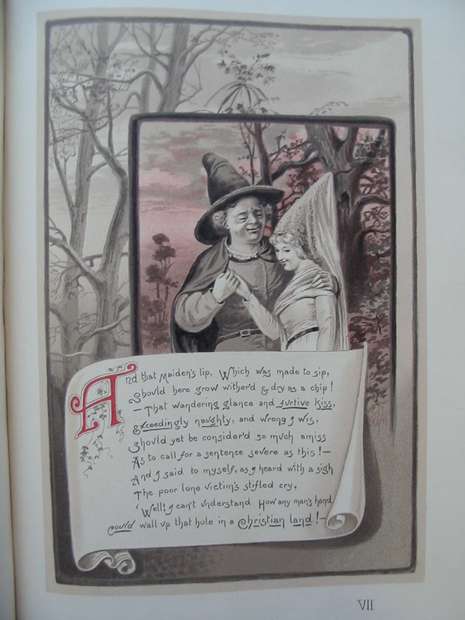 And that Maiden's lip, Which was made to sip,
Should here grow wither'd & dry as a chip!
—That wandering glance and furtive kiss,
Exceedingly naughty, and wrong, I wis,
Should yet be consider'd so much amiss
As to call for a sentence severe as this!—
And I said to myself, as I heard with a sigh
The poor lone victim's stifled cry,
'Well, I can't understand How any man's hand
could wall up that hole in a Christian land!—
VII